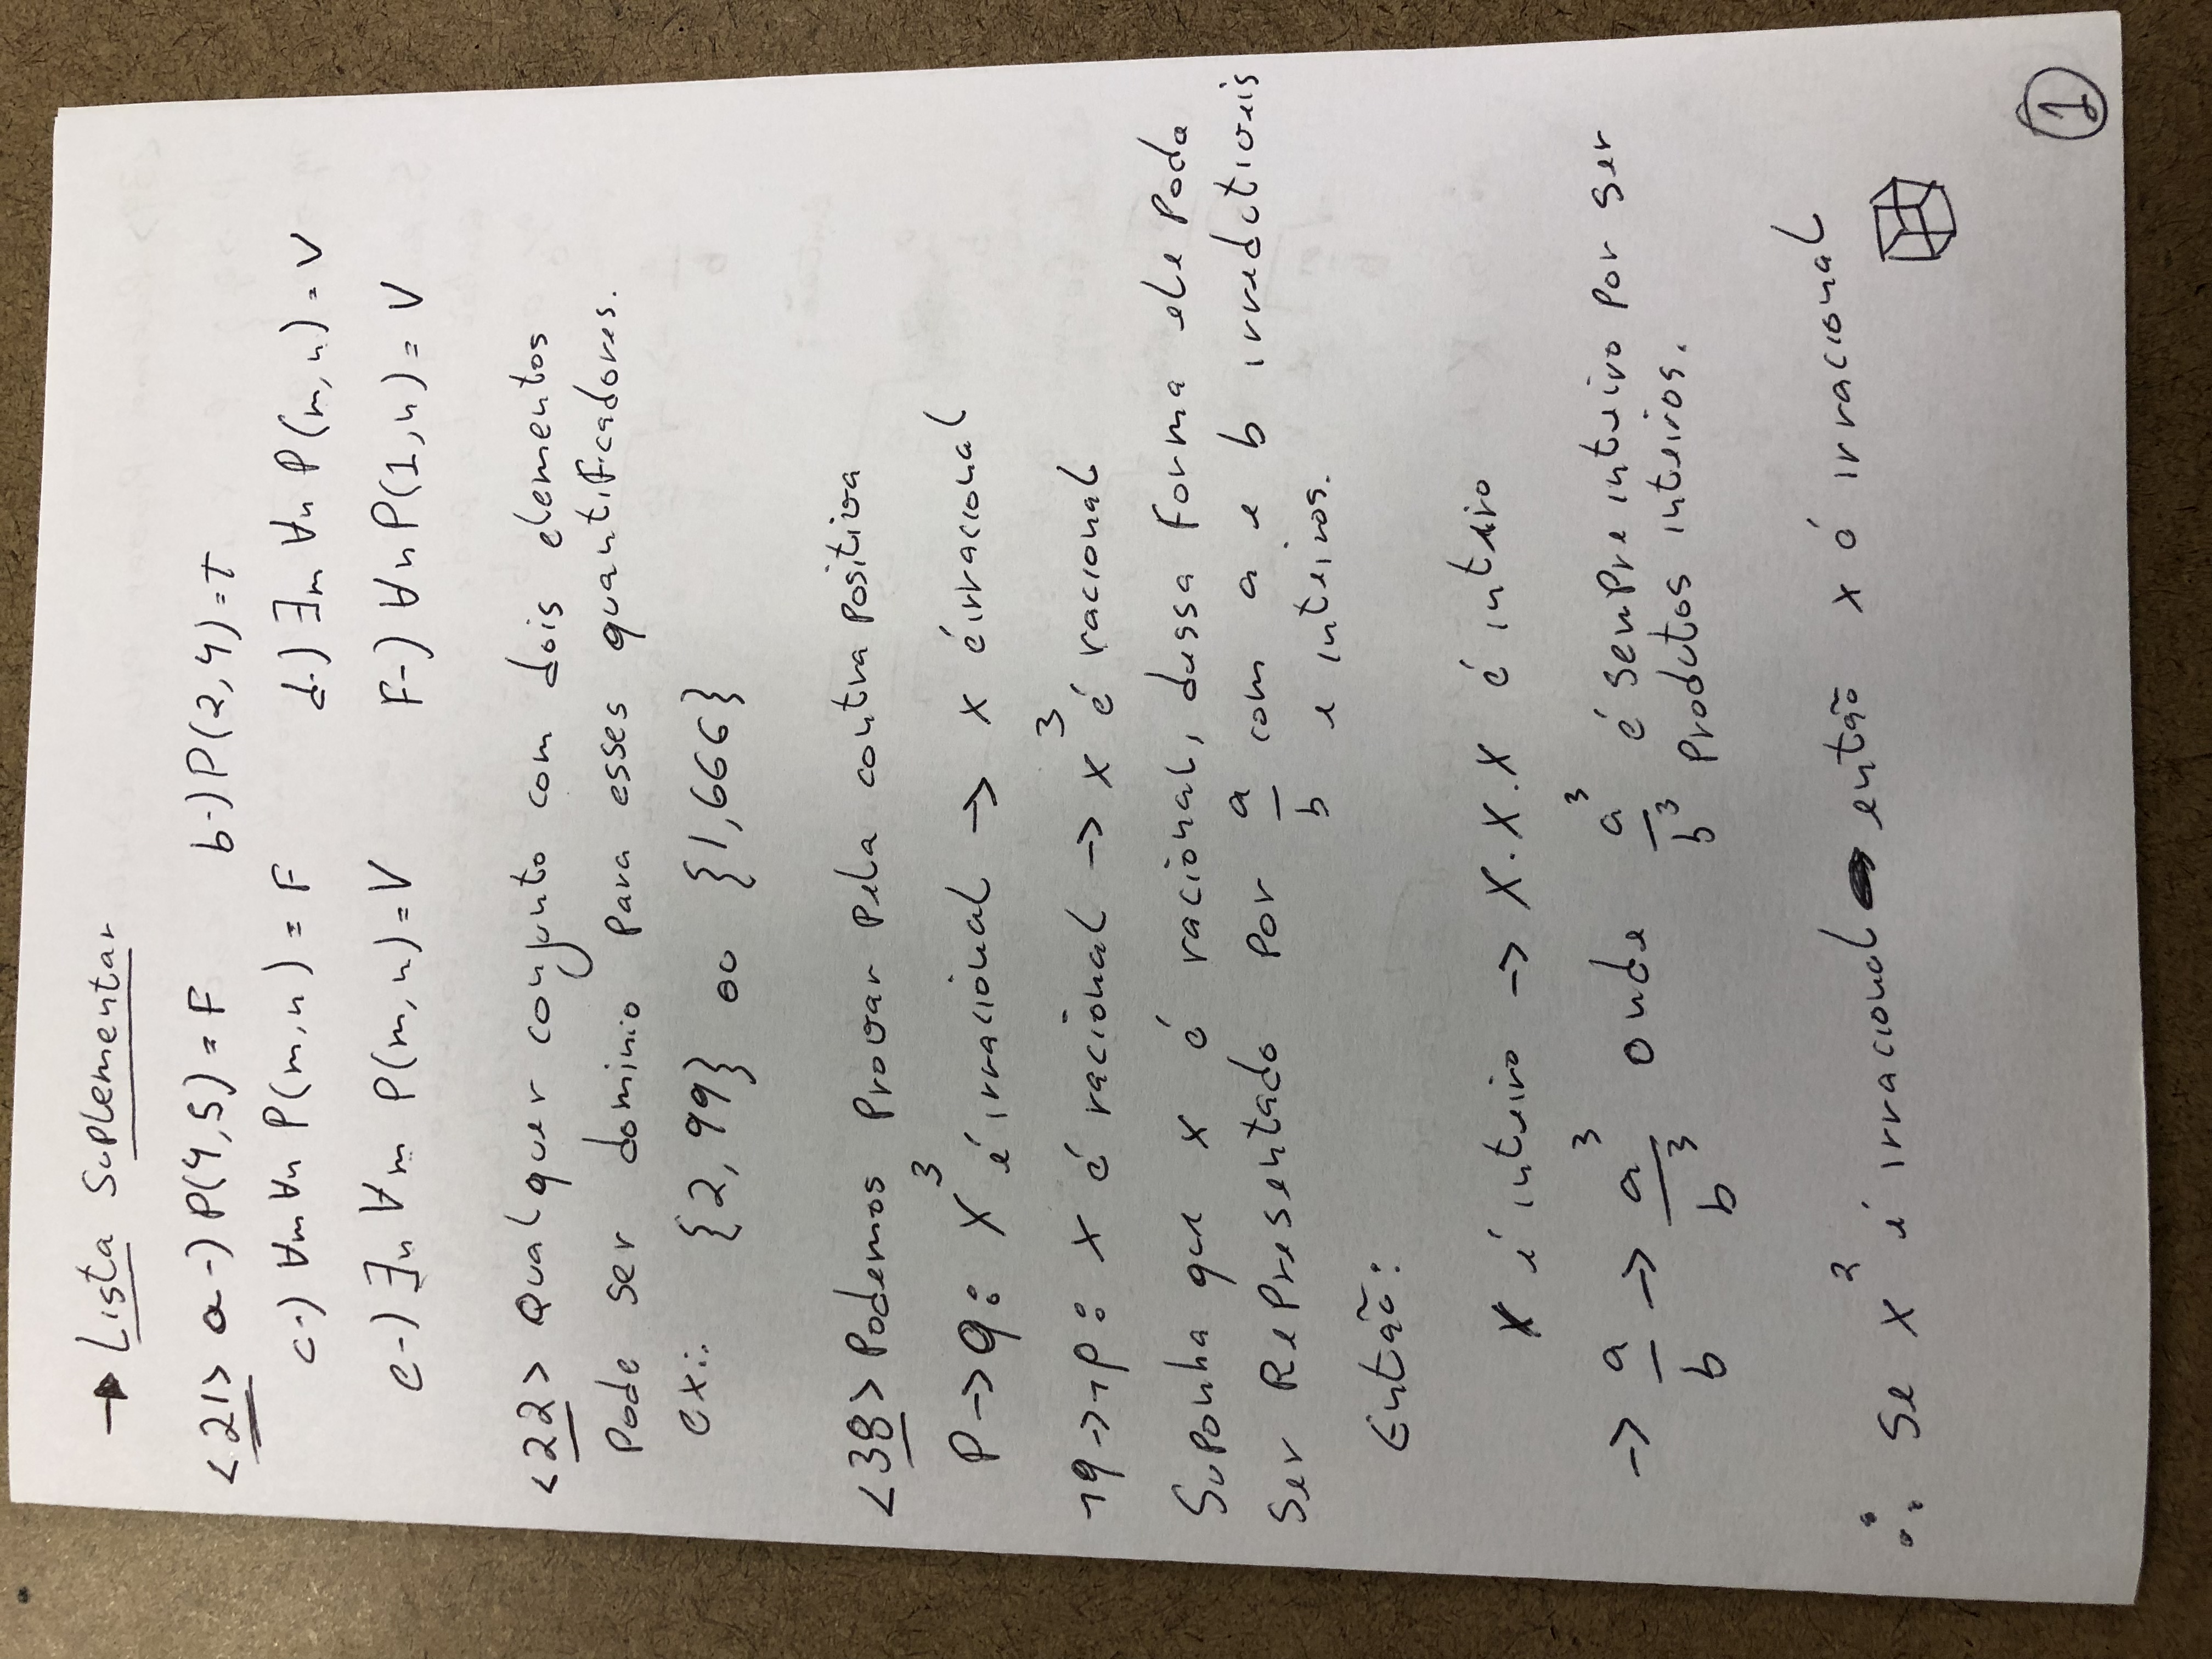 → Lista Suplementar
<21> a-) P(4,5) = F b-) P(2,4) = T
c-) ∀m ∀n P(m,n) = F d-) ∃m ∀n P(m,n) = V
e-) ∃n ∀m P(m,n) = V F-) ∀n P(1,n) = V
<22> Qualquer conjunto com dois elementos
Pode ser dominio para esses quantificadores.
ex:. {2,99} ou {1,666}
<38> Podemos Provar Pela contra positiva
P→q: x³ é irracional → x é irracional
¬q→¬p: x é racional → x³ é racional
Suponha que x é racional, dessa Forma ele pode
ser Representado por a/b com a e b irredutiveis
e inteiros.
Então:
x é inteiro → x.x.x é inteiro
→ a/b → a³/b³ onde a³/b³ é sempre inteiro por ser
produtos inteiros.
∴ Se x² é irracional então x é irracional
1